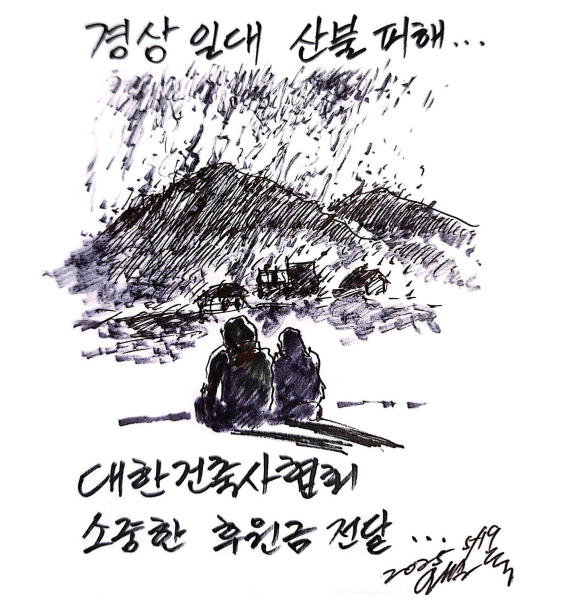 경상 일대 산불 피해...
대한건축사협회
소중한 후원금 전달...
2025 5/19